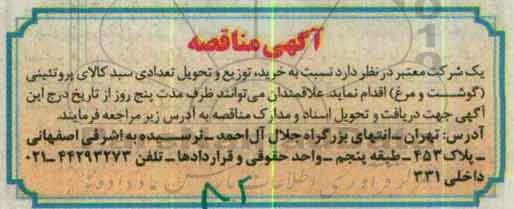 آگهی مناقصه
یک شرکت معتبر در نظر دارد نسبت به خرید، توزیع و تحویل تعدادی سبد کالای پروتئینی
(گوشت و مرغ) اقدام نماید. علاقمندان می‌توانند ظرف مدت پنج روز از تاریخ درج این
آگهی جهت دریافت و تحویل اسناد و مدارک مناقصه به آدرس زیر مراجعه فرمایند.
آدرس: تهران ـ انتهای بزرگراه جلال آل‌احمد ـ نرسیده به اشرفی اصفهانی
ـ پلاک ۴۵۳ ـ طبقه پنجم ـ واحد حقوقی و قراردادها ـ تلفن ۴۴۲۹۳۲۷۳ ـ ۰۲۱
داخلی ۳۳۱
۸۲